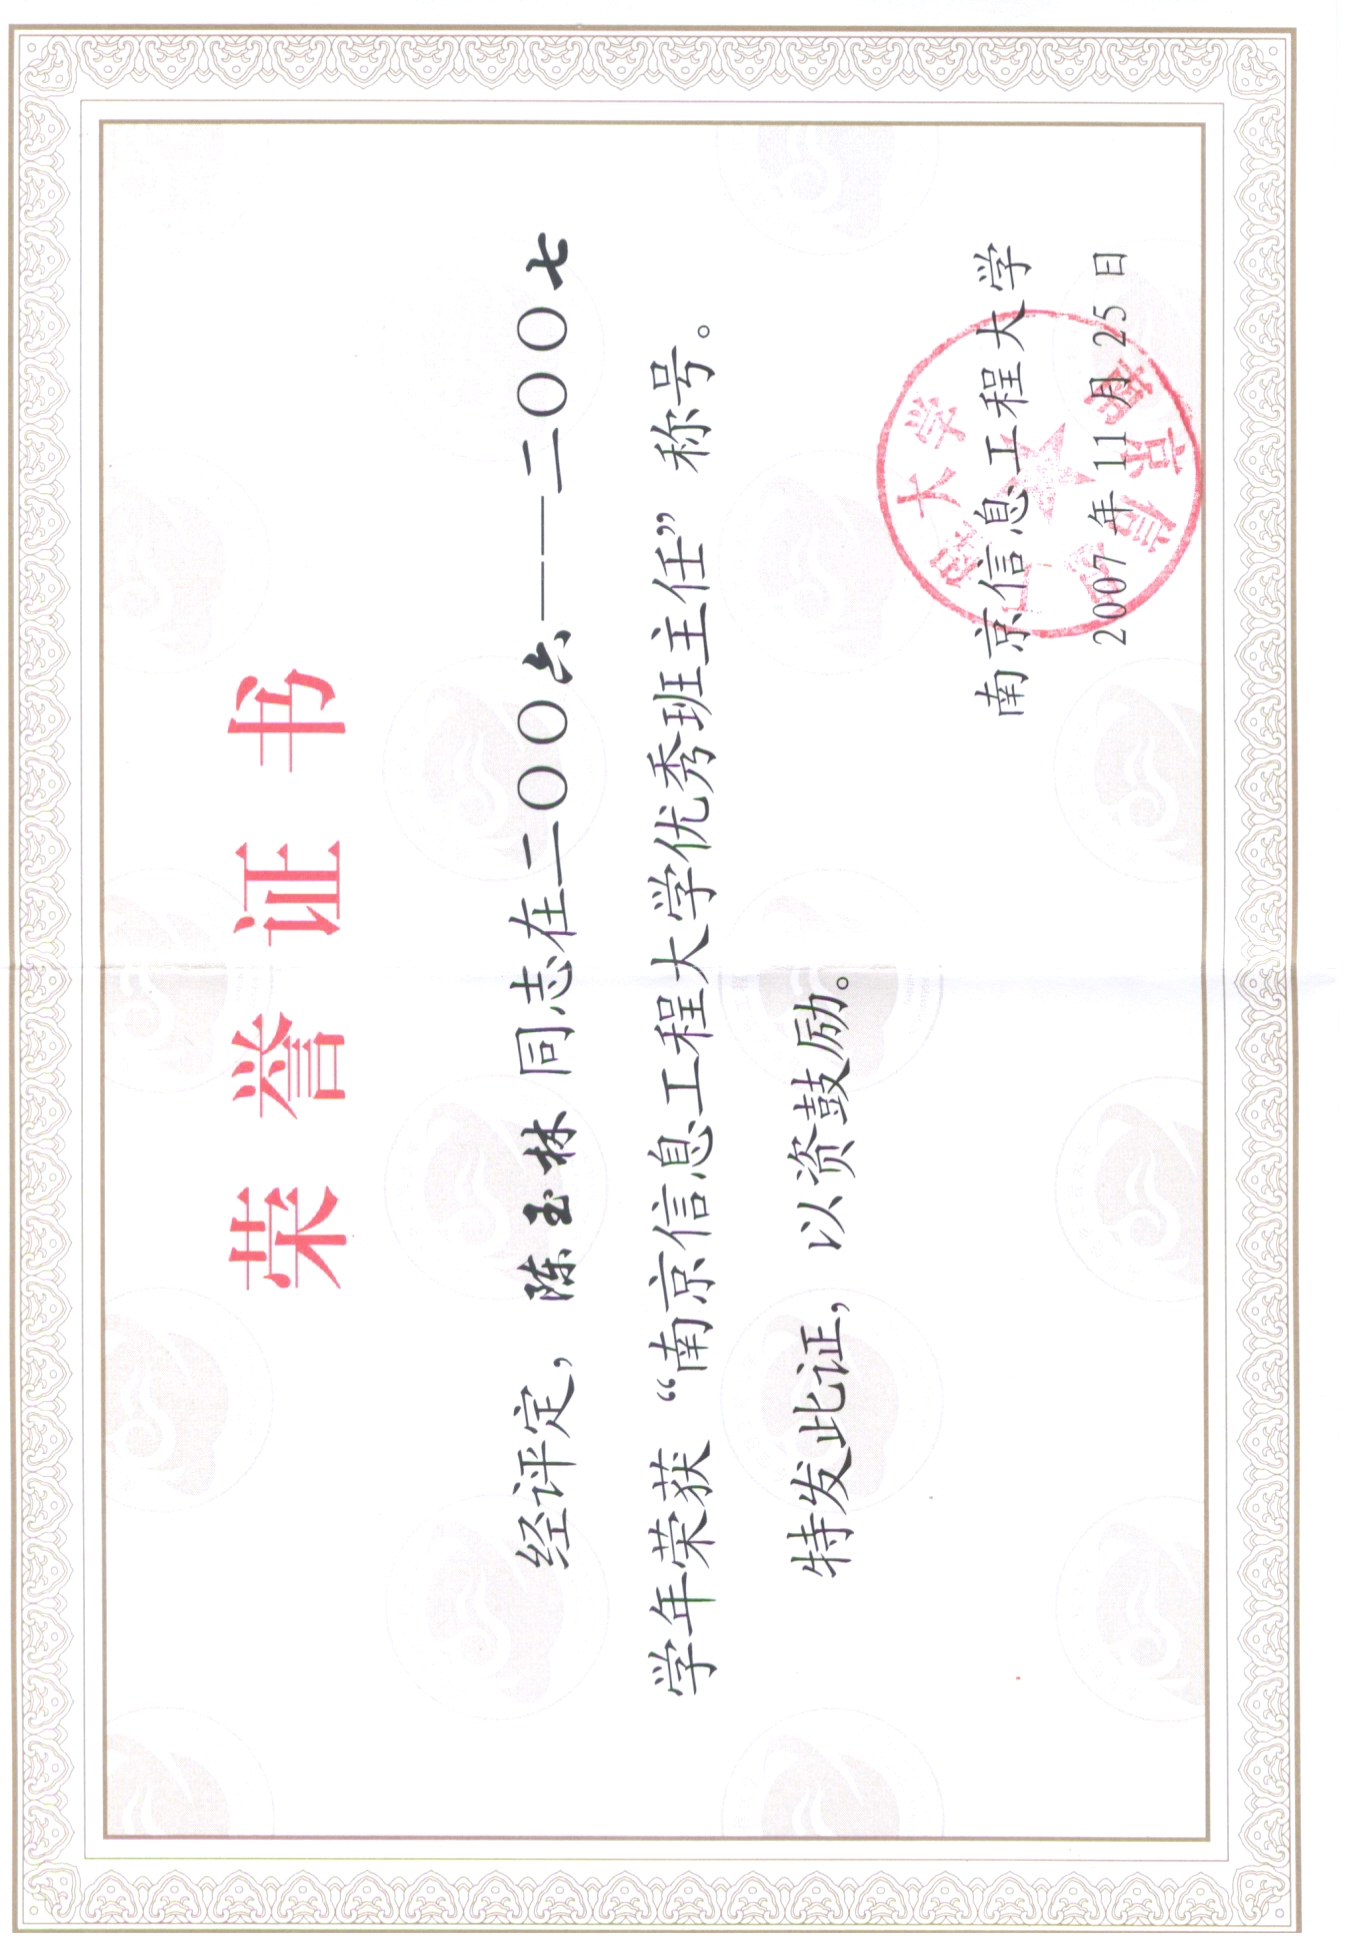 荣誉证书
经评定，陈玉林同志在二〇〇六——二〇〇七
学年荣获“南京信息工程大学优秀班主任”称号。
特发此证，以资鼓励。
南京信息工程大学
2007 年 11 月 25 日
南京信息工程大学